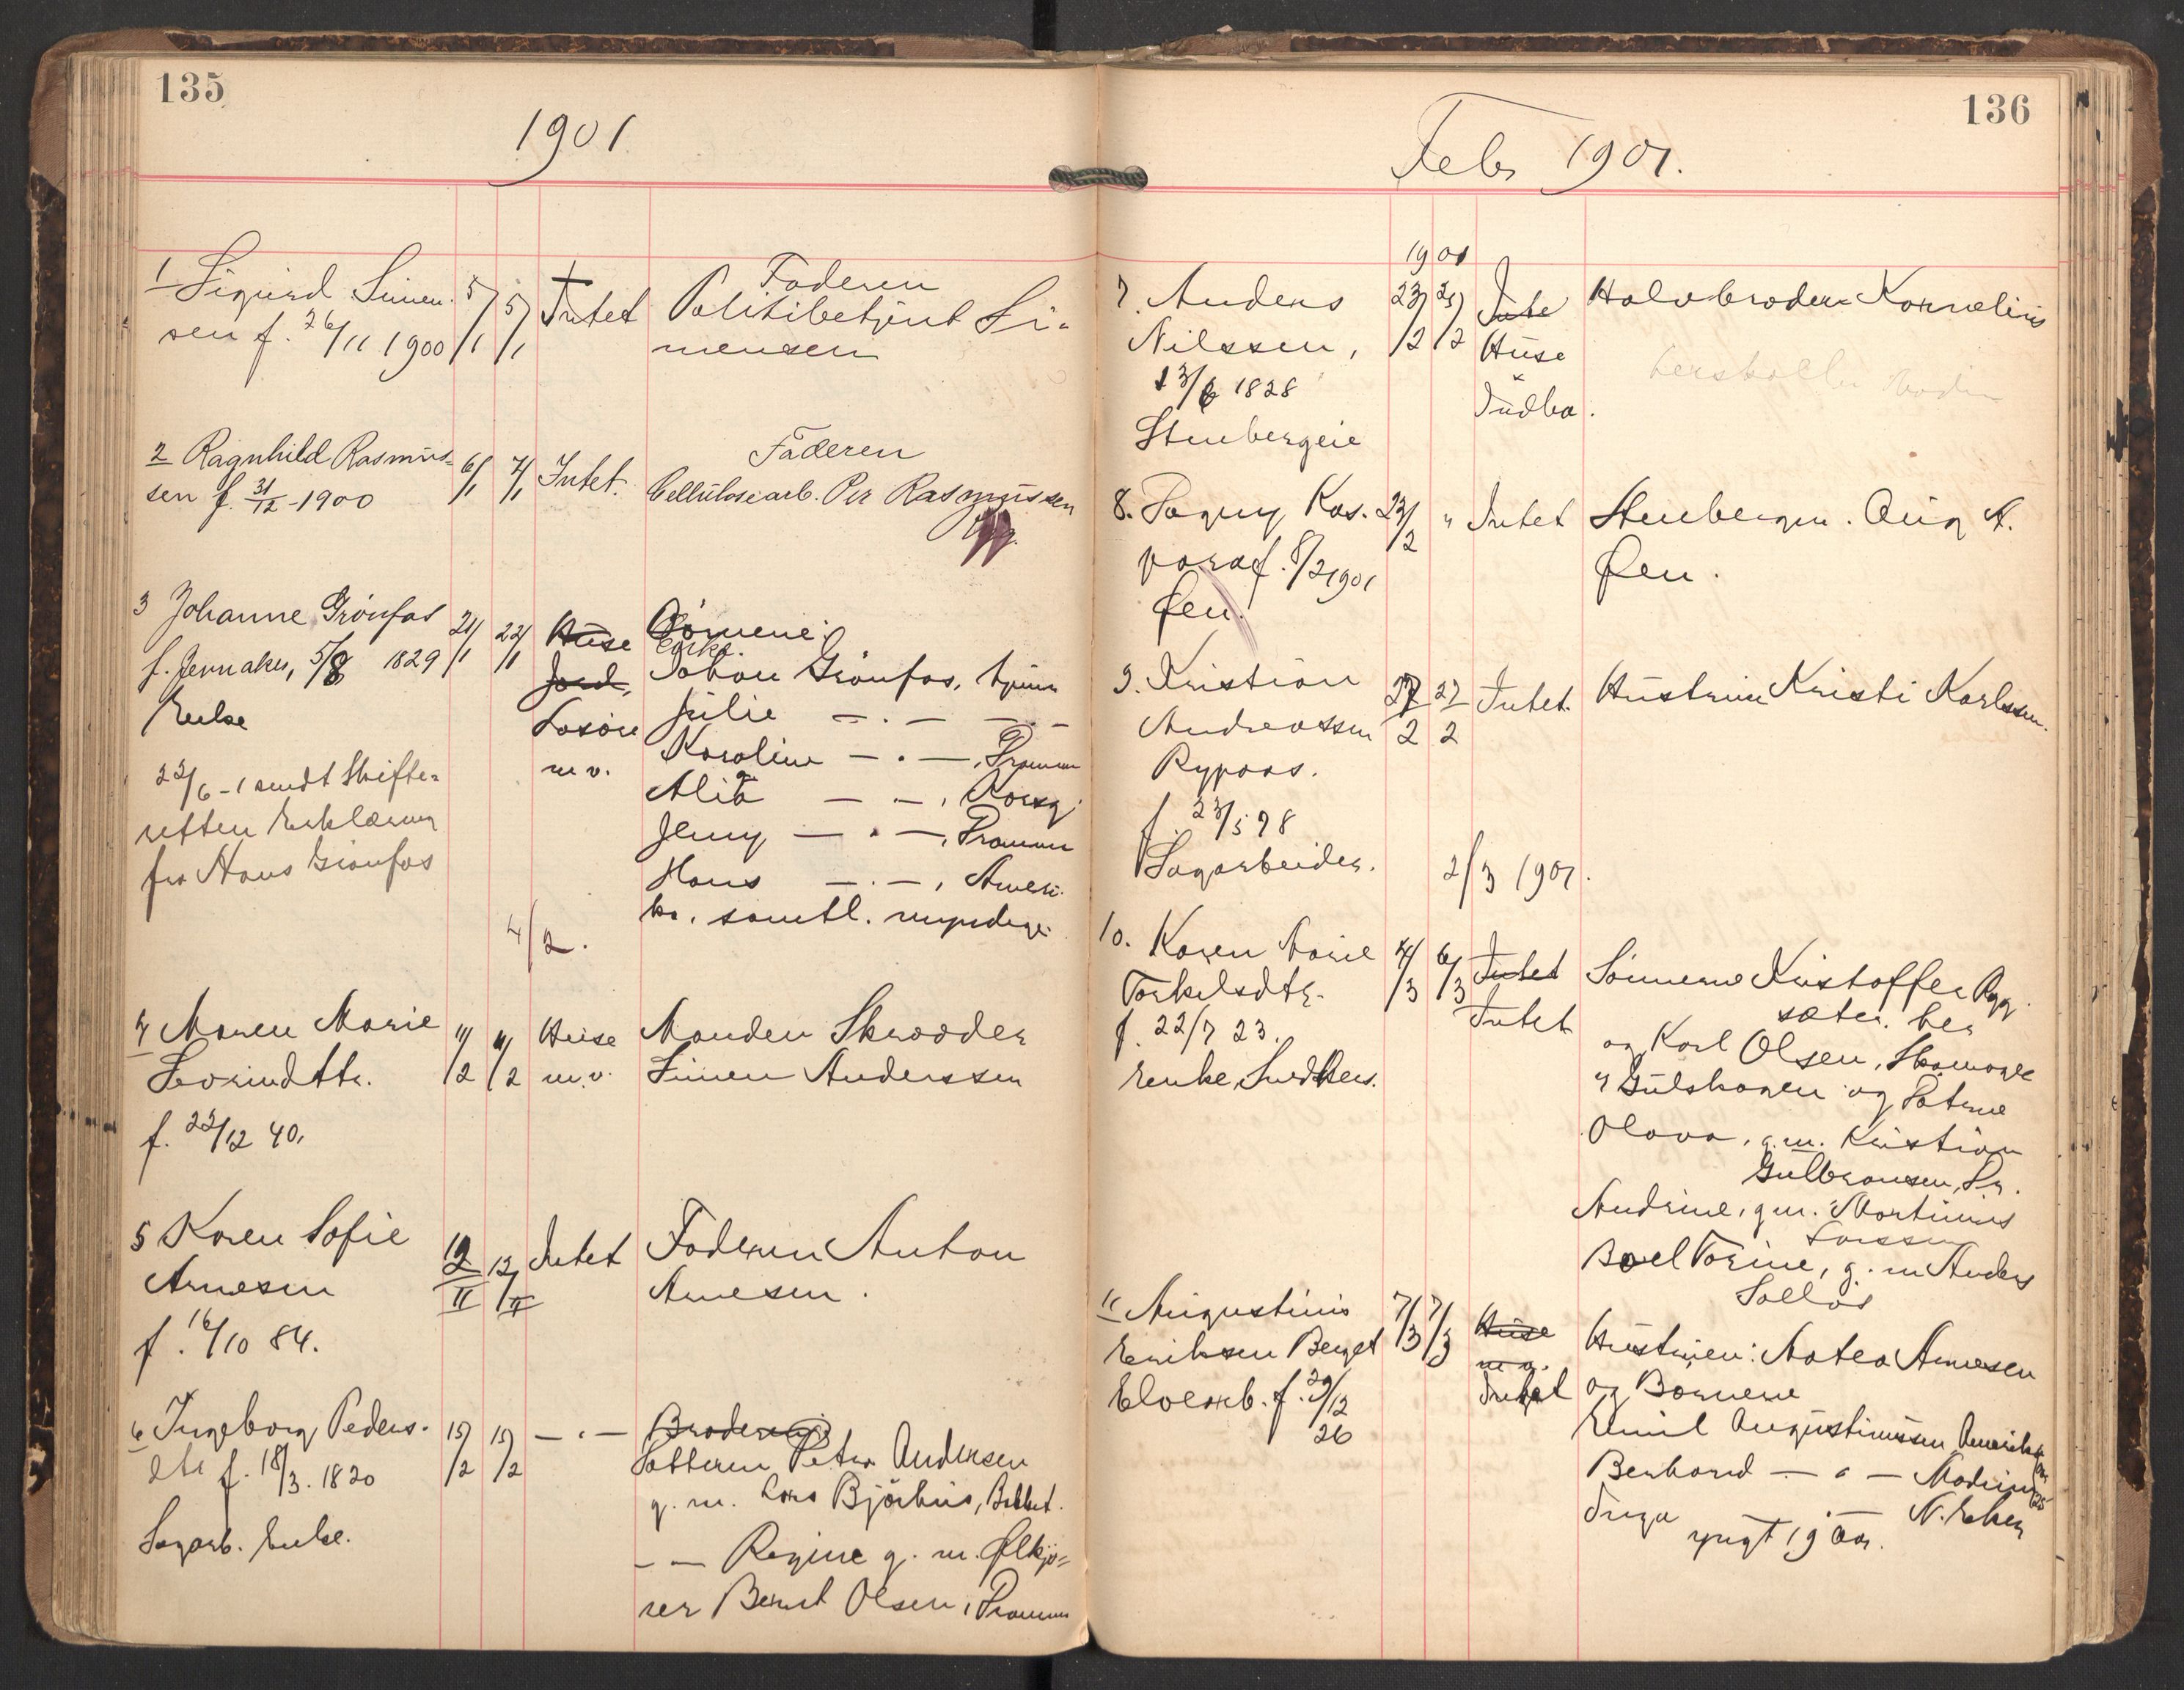 135
1901
1 Sigurd Simen-
sen f. 26/11 1900
5/1
5/1
Intet
Faderen
Politibetjent Si-
mensen
2 Ragnhild Rasmus-
sen f. 31/12 - 1900
6/1
7/1
Intet.
Faderen
Cellulosearb. Per Rasmussen
3 Johanne Grönfos
f. Jevnaker, 5/8 1829
Enke
21/1
22/1
Huse
Jord,
Lösöre
m. v.
Börnene:
Johan Grönfos,
Julie — . — — . —
Karoline — . —, Drammen
Alida — . —,
Jenny — . —, Drammen
Hans — . —, Ameri-
ka, samtl. myndige
22/6 - 1 sendt Skifte-
retten Erklæring
fra Hans Grönfos
4/2.
4 Maren Marie
f. 22/12 40.
11/2
11/2
Huse
m. v.
Manden Skrædder
Simen Anderssen
5 Karen Sofie
Arnesen
f. 16/10 84.
12/II
12/II
Intet
Faderen Anton
Arnesen.
6 Ingeborg Peders-
dtr f. 18/3. 1820
Sagarb. Enke.
15/2
15/2
— . —
Broderen
Datteren Petra Andersen
g. m. Lars Björhus,
— — Regine g. m. Ölkjö-
rer Bernt Olsen, Drammen
136
Febr 1901.
1901
7. Anders
Nilssen,
13/6 1828
Stenbergeie
23/2
25/2
Inte
Huse
Indbo.
Halvbroder Kornelius
8. Dagny Kas-
para f. 8/2 1901
Øen.
23/2
"
Intet
Stenbergm. Aug A.
Øen.
9. Kristian
Andreassen
Rypaas.
f. 23/5 78
Sagarbeider.
27/2
27/2
Intet.
Hustruen Kristi Karlssen.
2/3 1901.
10. Karen Marie
Torkelsdtr.
f. 22/7 23.
Enke,
4/3
6/3
Intet
Intet
Sönnerne Kristoffer Ryg
sæter. her
og Karl Olsen, Skomager
" Gulskogen og Døtrene
Olava, g. m. Kristian
Gulbransen,
Andrine, g m. Martinius
Larssen
Boel Torine, g. m Anders
Solläs
11 Augustinus
Eriksen Berget
Elvearb. f. 29/12
26
7/3
7/3
Huse
m. v.
Intet
Hustruen: Matea Arnesen
og Börnene
Emil Augustinussen Amerika
Bernhard — " — Modum
Inga — . — N. Eker
yngst 19 Aar.